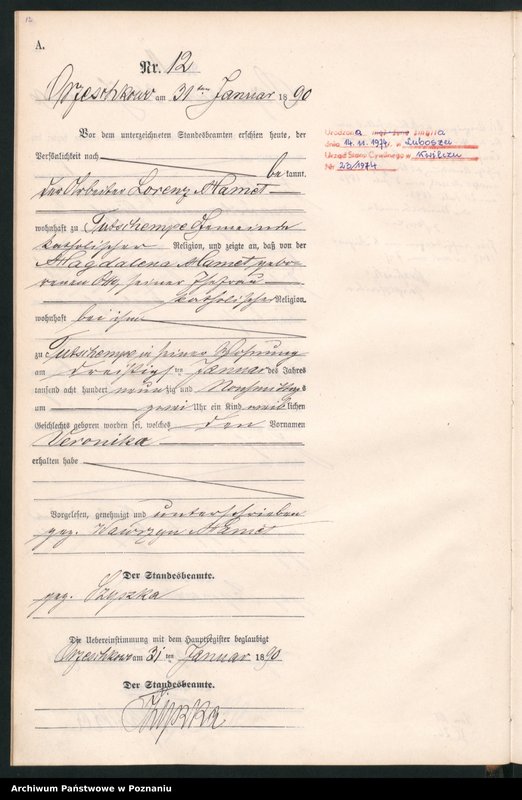 12
A.
Nr. 12
am 31ten Januar 1890
Vor dem unterzeichneten Standesbeamten erschien heute, der
Persönlichkeit nach
bekannt.
der Arbeiter Lorenz Mamet
wohnhaft zu Tutschempe Gemeinde
katholischer Religion, und zeigte an, daß von der
Magdalena Mamet gebo-
renen seiner Ehefrau
katholischer Religion,
wohnhaft bei ihm
zu Tutschempe in seiner Wohnung
am dreißigsten Januar des Jahres
tausend acht hundert neunzig und Nachmittags
um zwei Uhr ein Kind weiblichen
Geschlechts geboren worden sei, welches den Vornamen
Veronika
erhalten habe
Vorgelesen, genehmigt und unterschrieben
gez. Wawrzyn Mamet
Der Standesbeamte.
gez. Szyszka
Die Uebereinstimmung mit dem Hauptregister beglaubigt
am 31ten Januar 1890
Der Standesbeamte.
Szyszka
Urodzona zmarła
dnia 14.11.1974 w Luboszu
Urząd Stanu Cywilnego w Kwilczu
Nr 23/1974
Archiwum Państwowe w Poznaniu